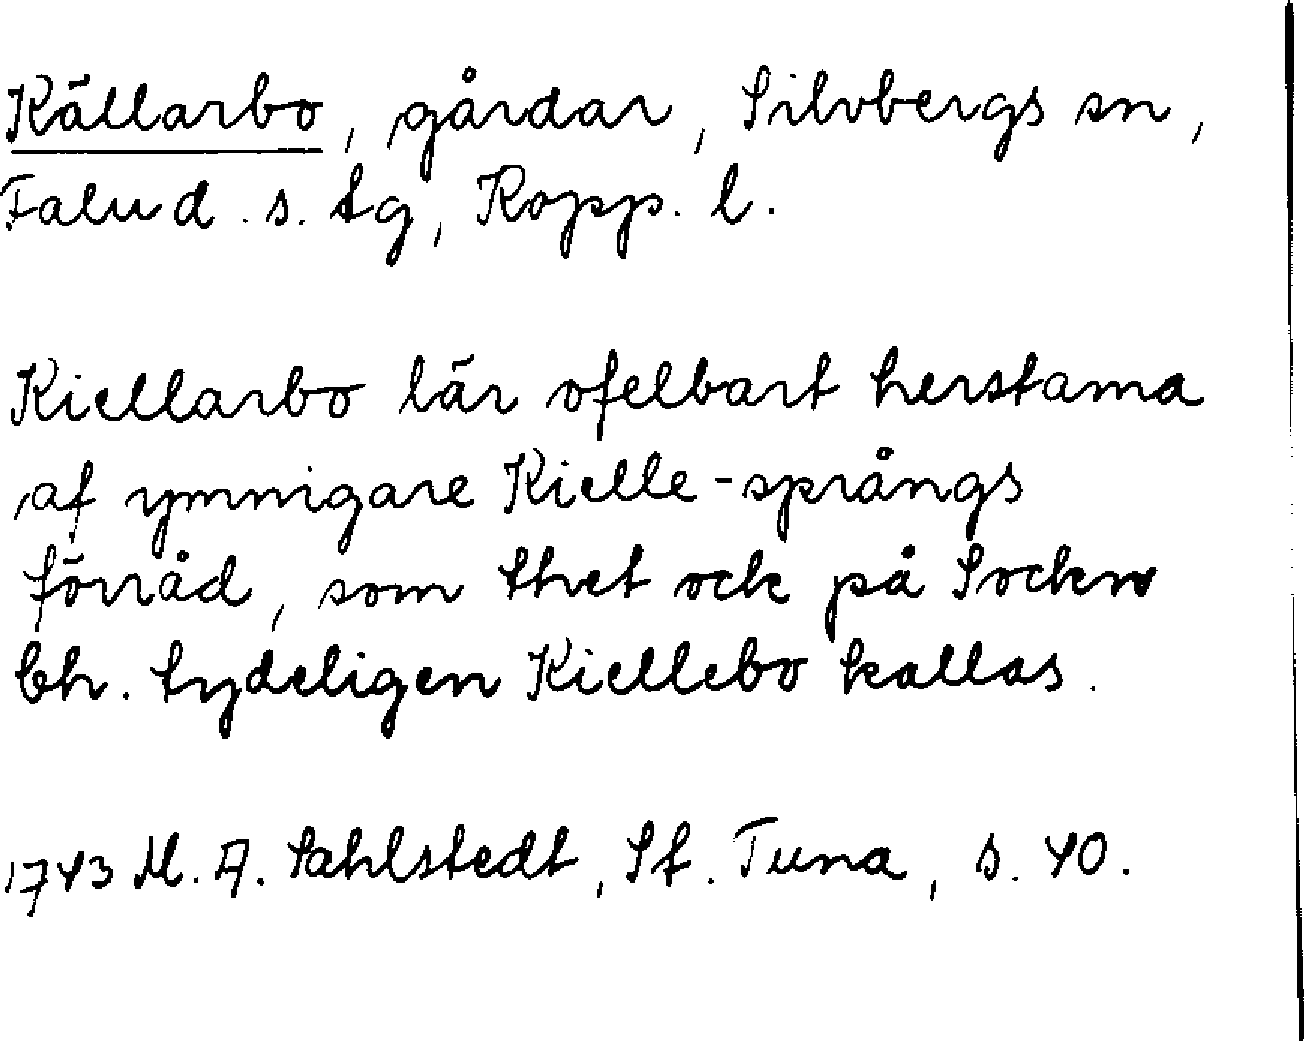 Källarbo, gårdar, Silvbergs sn,
Falu d. s. tg, Kopp. l.
Kiellarbo lär ofelbart herstama
af ymnigare Kielle-språngs
förråd, som thet ock på Sockne
bh. tydeligen Kiellebo kallas.
1743 M. A. Sahlstedt, St. Tuna, s. 40.